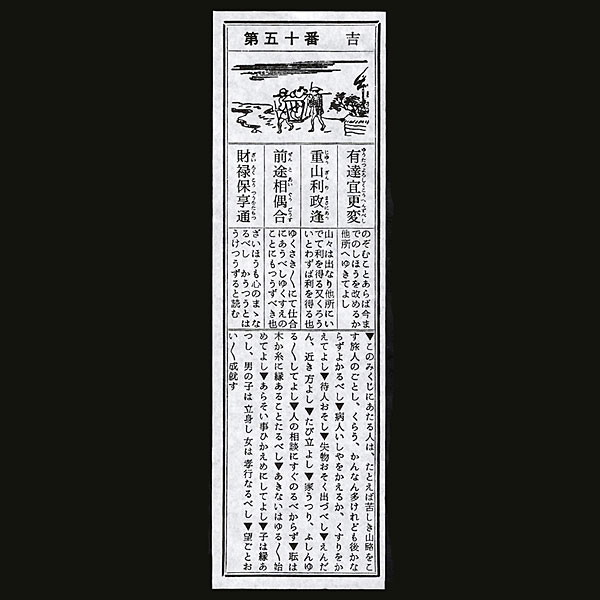 第五十番 吉
有達宜更変
重山利政逢
前途相偶合
財禄保享通
のぞむことあらば今ま
でのしほうを改めるか
他所へゆきてよし
山々は出なり他所にい
でて利を得る又くろう
いとわずば利を得る也
ゆくさき〳〵にて仕合
にあうべしゆくすえの
ことにもつうずべき也
ざいほうも心のまゝな
るべし かうつうとは
うけつうずると読む
▼このみくじにあたる人は、たとえば苦しき山路をこ
す旅人のごとし、くらう、かんなん多けれども後かな
らずよかるべし▼病人いしやをかえるか、くすりをか
えてよし▼待人おそし▼失物おそく出づべし▼えんだ
ん、近き方よし▼たび立よし▼家うつり、ふしんゆ
る〳〵してよし▼人の相談にすぐのるべからず▼
木か糸に縁あることたるべし▼あきないはゆる〳〵始
めてよし▼あらそい事ひかえめにしてよし▼子は縁あ
つし、男の子は立身し女は孝行なるべし▼望ごとお
い〳〵成就す